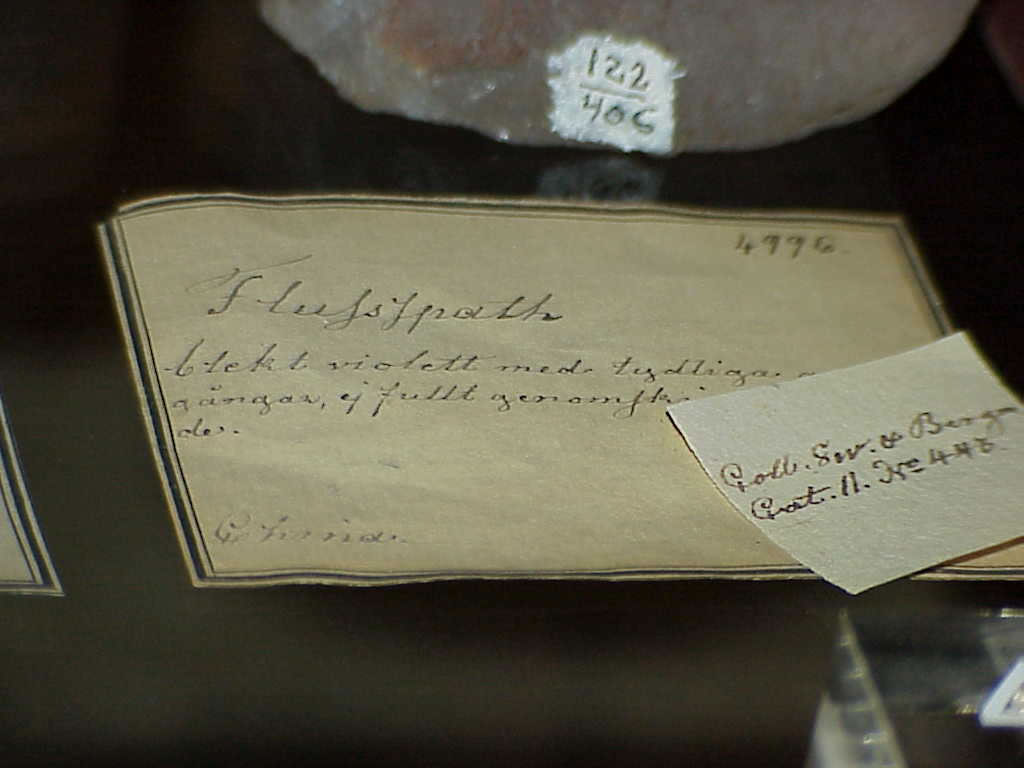 122
406
4776.
Flussspath
blekt violett med tydliga
gångar, ej fullt genomski
de.
China.
Coll. Sw. & Bergm
Cat. 11. No 448